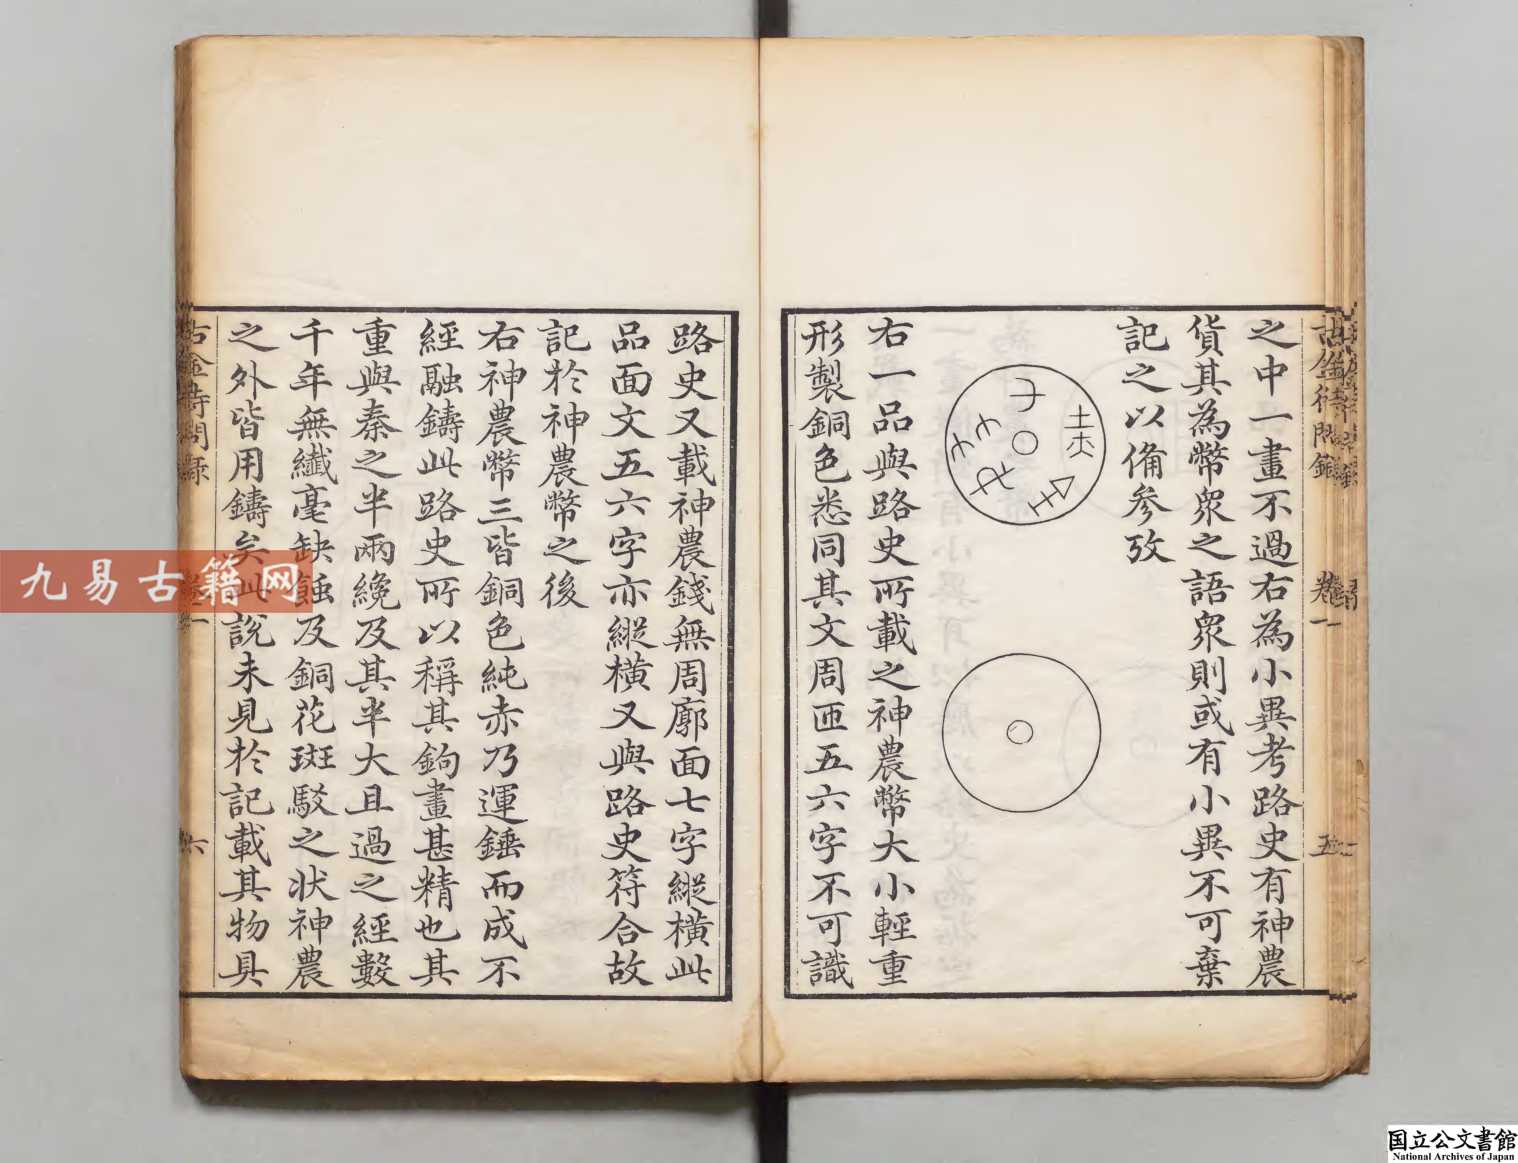 之中一畫不過右為小異考路史有神農
貨其為幣衆之語衆則或有小異不可棄
記之以俻參攷
右一品與路史所載之神農幣大小輕重
形製銅色悉同其文周匝五六字不可識
路史又載神農錢無周廓面七字縱橫此
品面文五六字亦縱橫又與路史符合故
記於神農幣之後
右神農幣三皆銅色純赤乃運錘而成不
經融鑄此路史所以稱其鉤畫甚精也其
重與秦之半兩纔及其半大且過之經數
千年無纖毫缺蝕及銅花斑駁之状神農
之外皆用鑄矣此說未見於記載其物具
古金待問録
卷一
五
六
九易古籍网
国立公文書館
National Archives of Japan